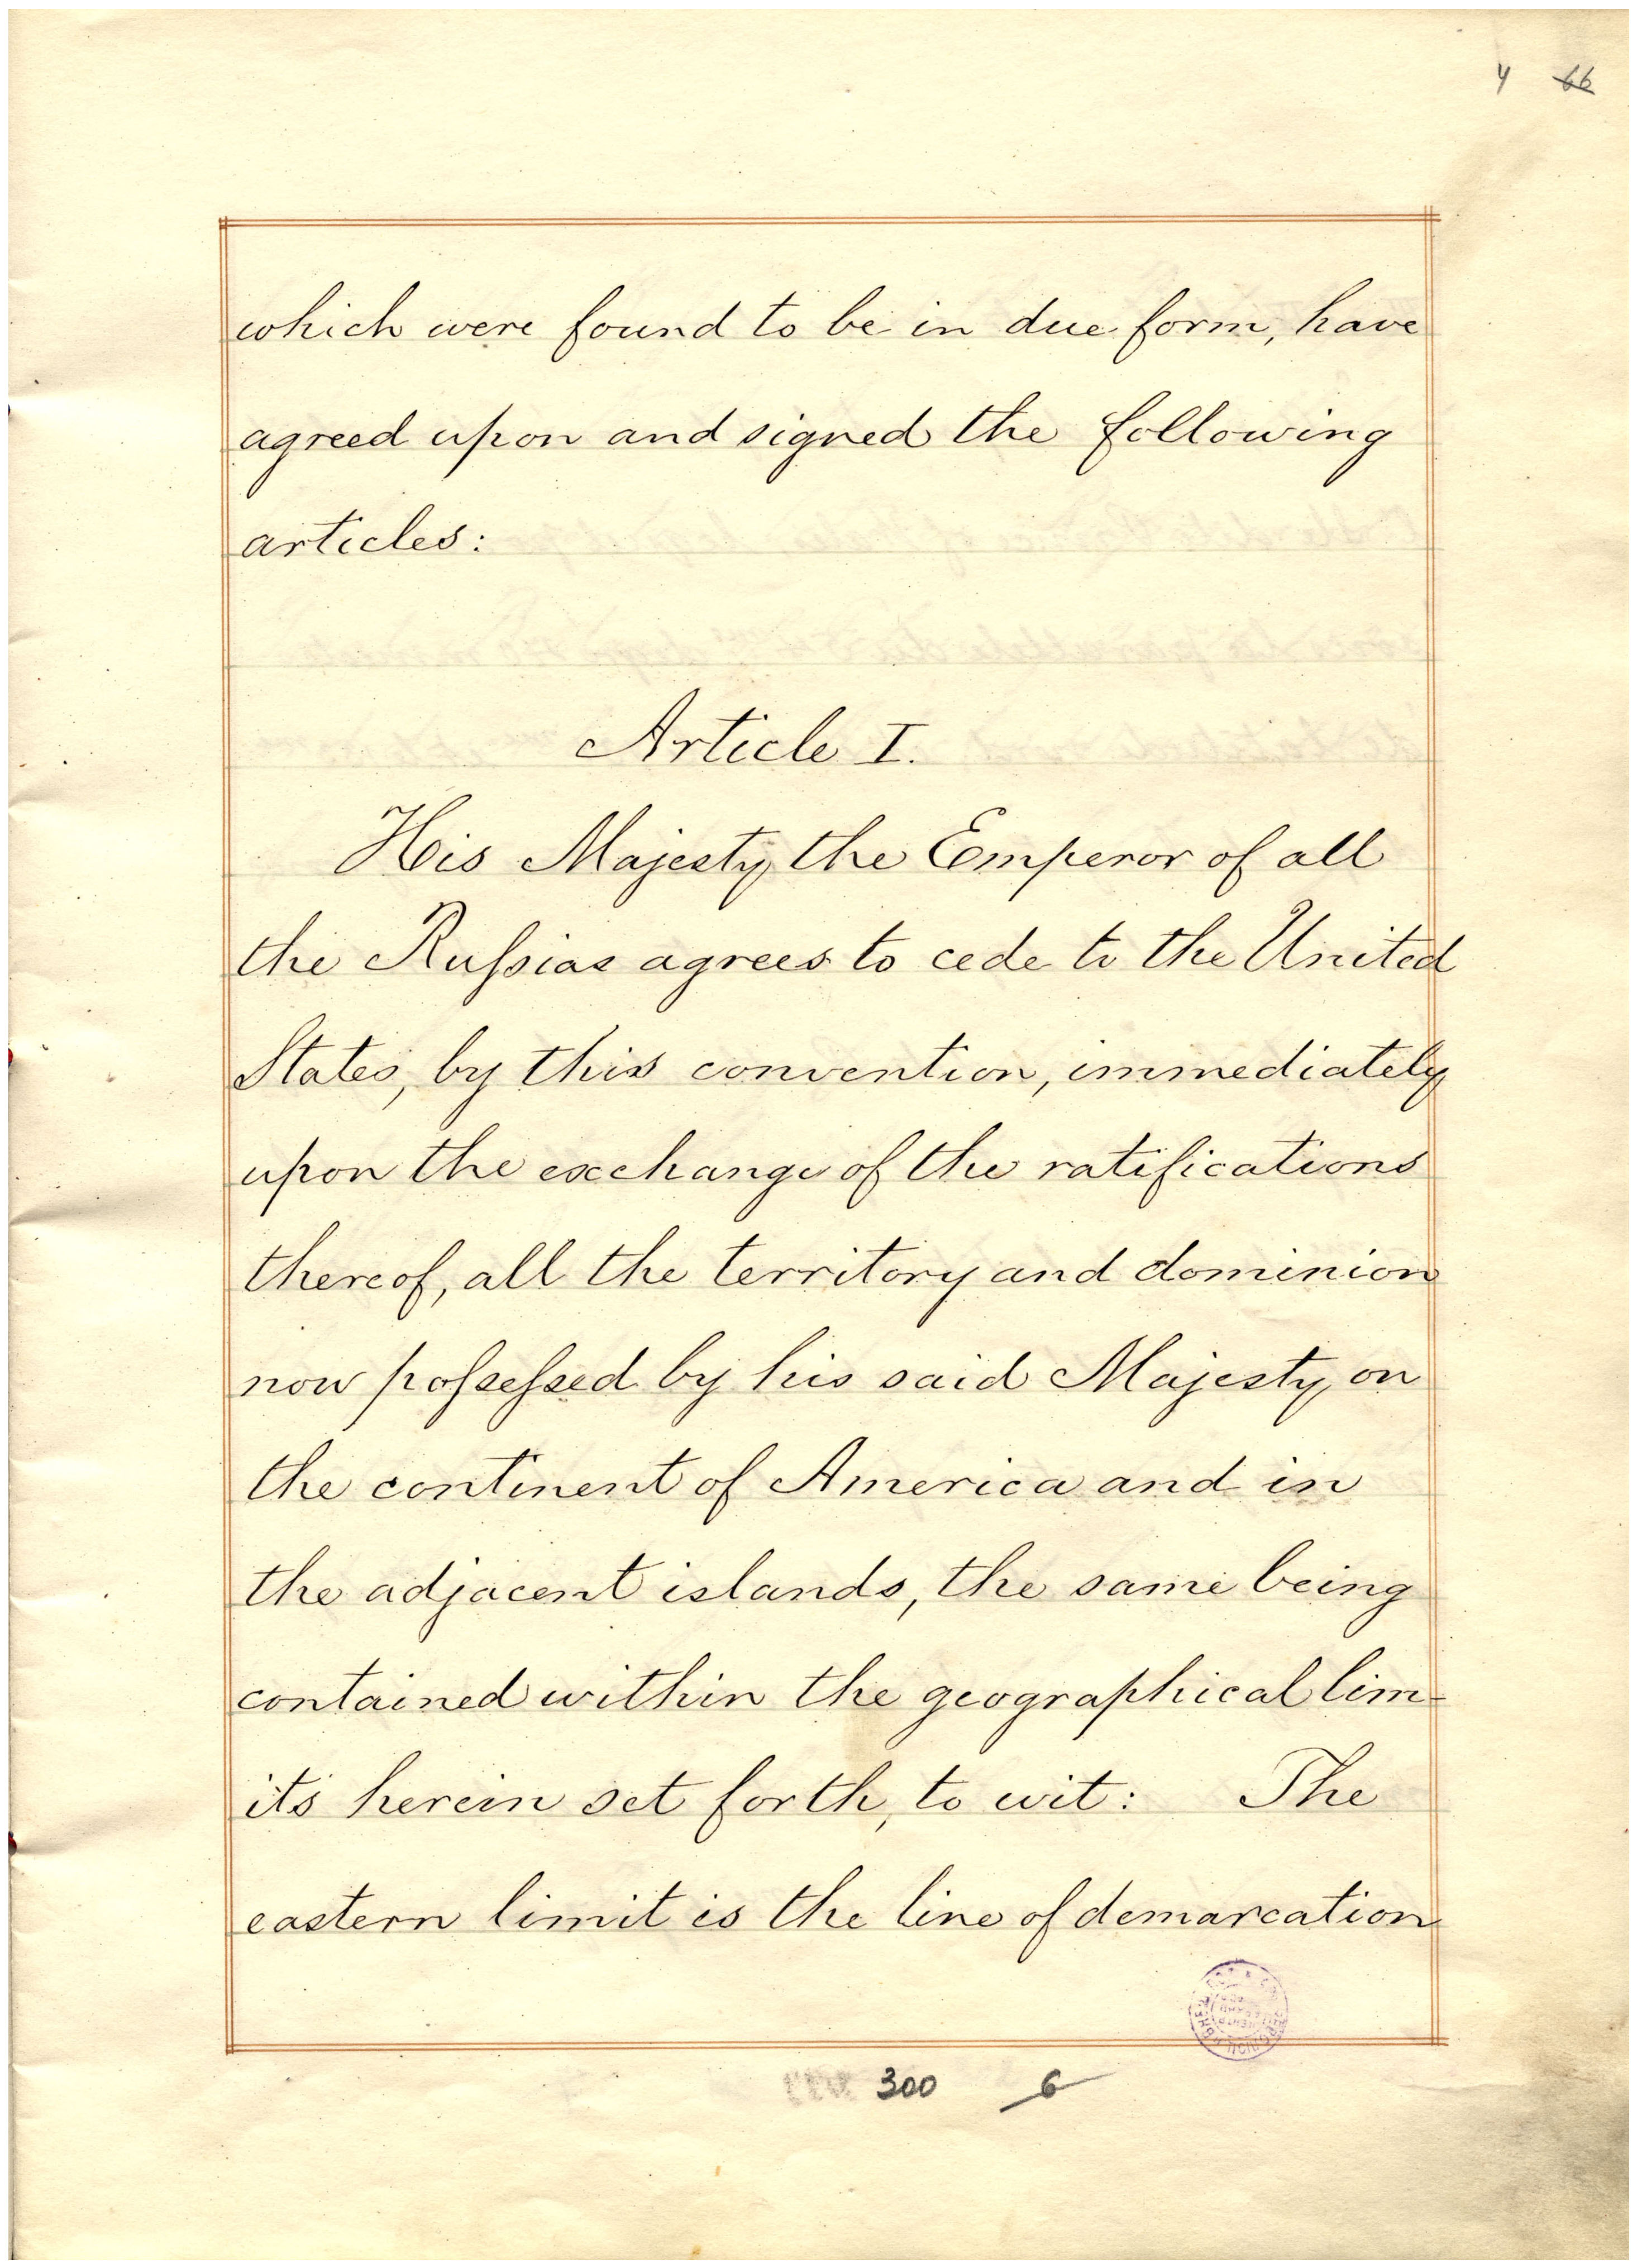 4 66
which were found to be in due form, have
agreed upon and signed the following
articles:
Article I.
His Majesty the Emperor of all
the Ruſsias agrees to cede to the United
States, by this convention, immediately
upon the exchange of the ratifications
thereof, all the territory and dominion
now poſseſsed by his said Majesty on
the continent of America and in
the adjacent islands, the same being
contained within the geographical lim-
its herein set forth, to wit: The
eastern limit is the line of demarcation
300 6